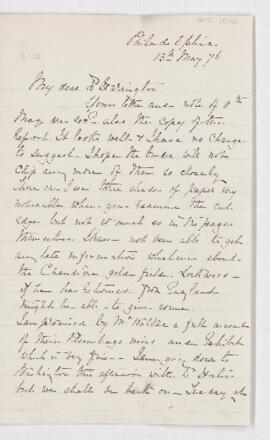 Philadelphia
13th May 76
My dear Dr Harrington
Your letter and note of 8th
May are recd also the copy of the
report. It looks well & I have no change
to suggest. I hope the binder will not
clip any more of them so closely
here on. I see three shades of paper very
noticeable when you examine the cut
edges but not so much so in the pages
themselves. I have not been able to get
any late information whatever about
the Chaudière gold field. Lockwood
if he has returned from England
might be able to give some.
I am promised by Mr Willis a full account
of their mine and exhibit
which is very fine. I am going down to
Washington this afternoon with Dr
but we shall be back on Tuesday at